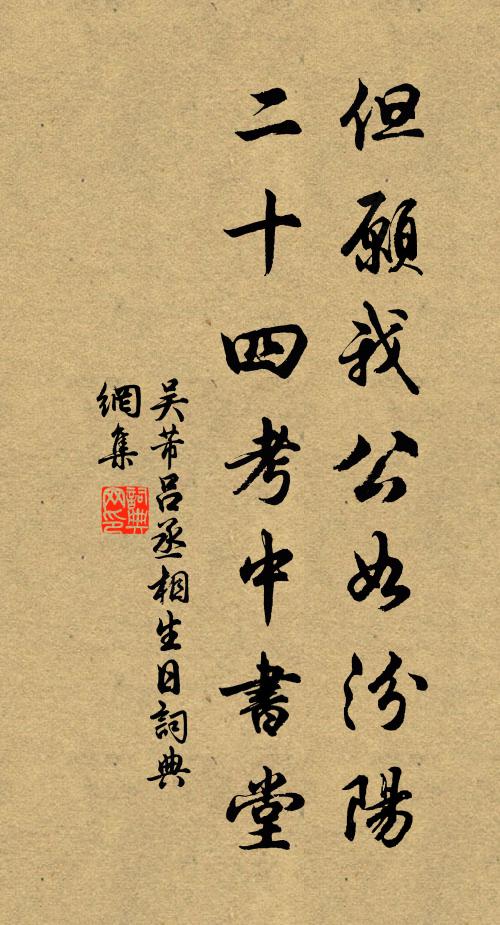 但願我公如汾陽
二十四考中書堂
吴芾呂丞相生日詞典
網集
詞典
网印